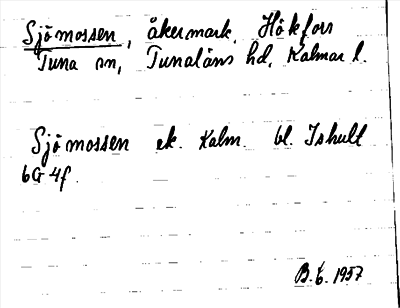 Sjömossen, åkermark, Hökfors
Tuna sn, Tunaläns hd, Kalmar l.
Sjömossen ek. Kalm. bl. Ishult
6G 4f.
B.E. 1957